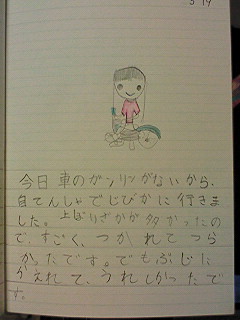 今日 車のガソリンがないから、
自てんしゃでじびかに行きま
した。上ばりざかが多かったの
で、すごく、つかれてつら
かったです。でもぶじに
かえれて、うれしかったで
す。